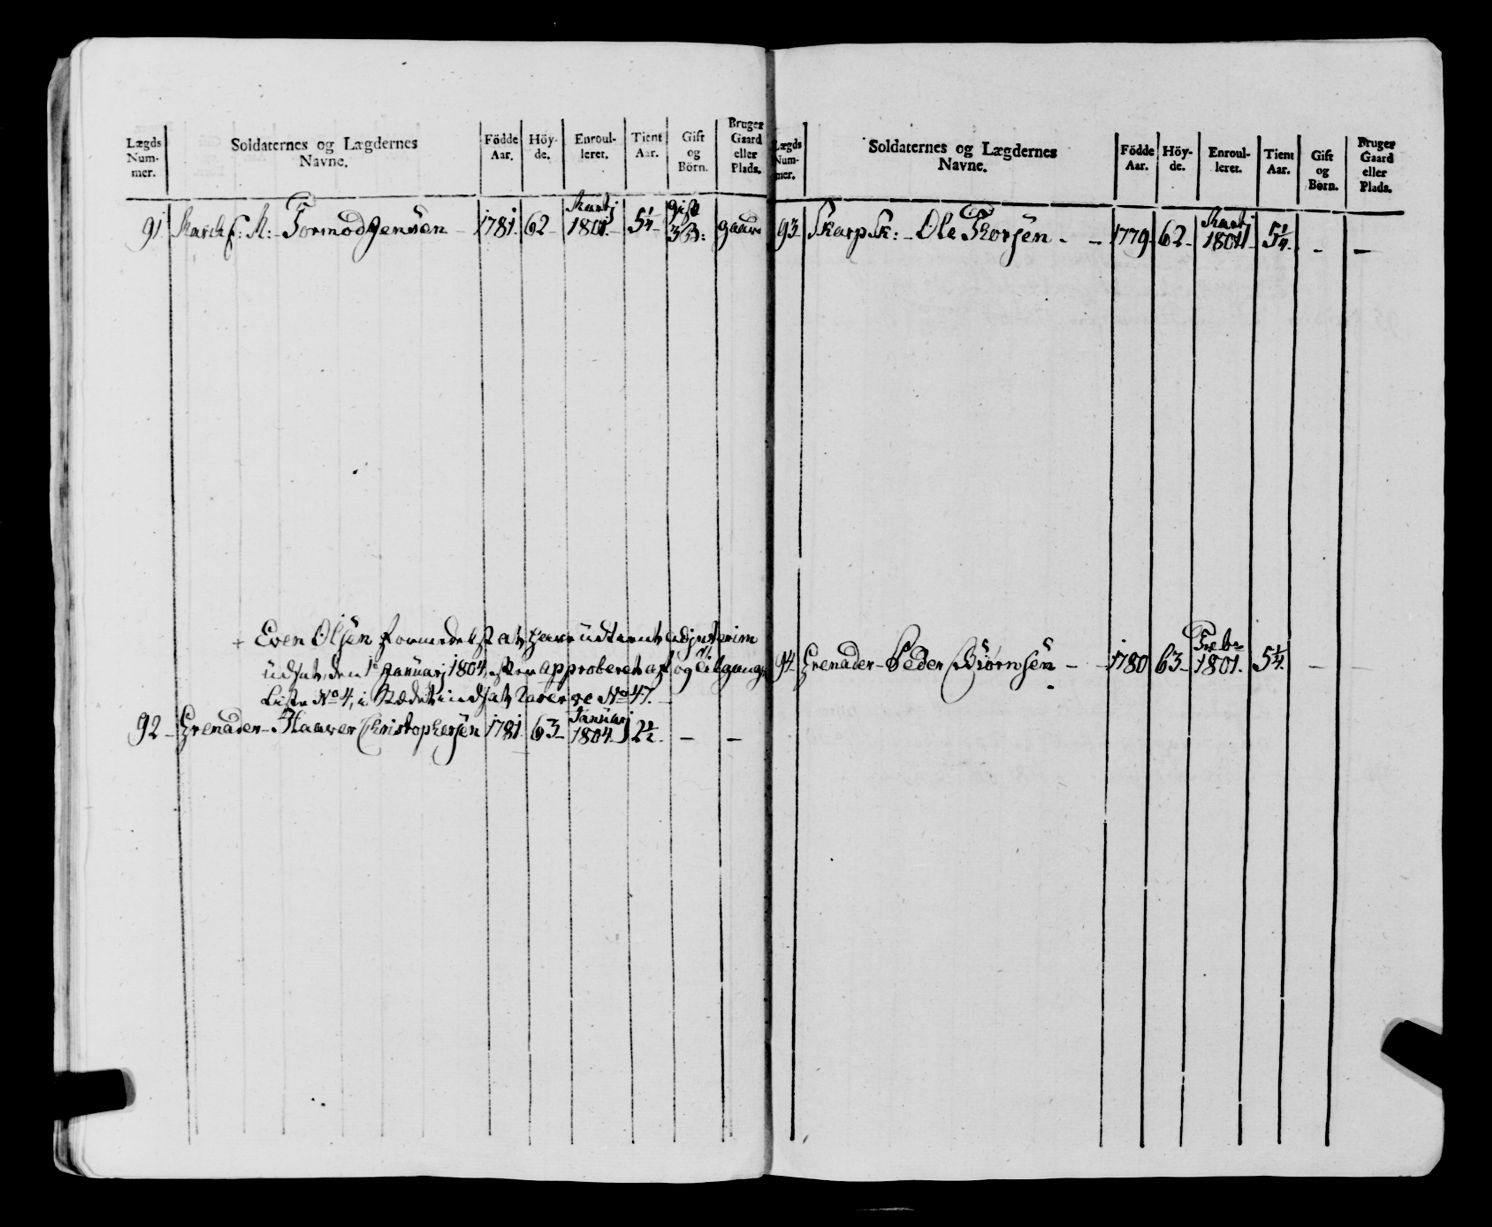 Lægds Num- mer. | Soldaternes og Lægdernes Navne. | Födde Aar. | Höy- de. | Enroul- leret. | Tient Aar. | Gift og Börn. | Bruger Gaard eller Plads.
91 Tormod Jensen 1781. 62 1801. 5 1/4 Gift 3 B: gaard
+ Even Olsen formedelst at have udtient ad interim
udsat den 1te Januarj 1804, efter approberet af og Tilgangs
Liste No 4, i Stædet indsat Reserve No 47.
92 Grenader Haaver Christophersen 1781 63 Januarj 1804 2 1/2 - -
Lægds Num- mer. | Soldaternes og Lægdernes Navne. | Födde Aar. | Höy- de. | Enroul- leret. | Tient Aar. | Gift og Børn. | Bruger Gaard eller Plads.
93 Skarp Sk: Ole Thorsen 1779 62 1801 5 1/4 - -
94 Grenader Peder Biørnsen 1780 63 1801. 5 1/4 - -